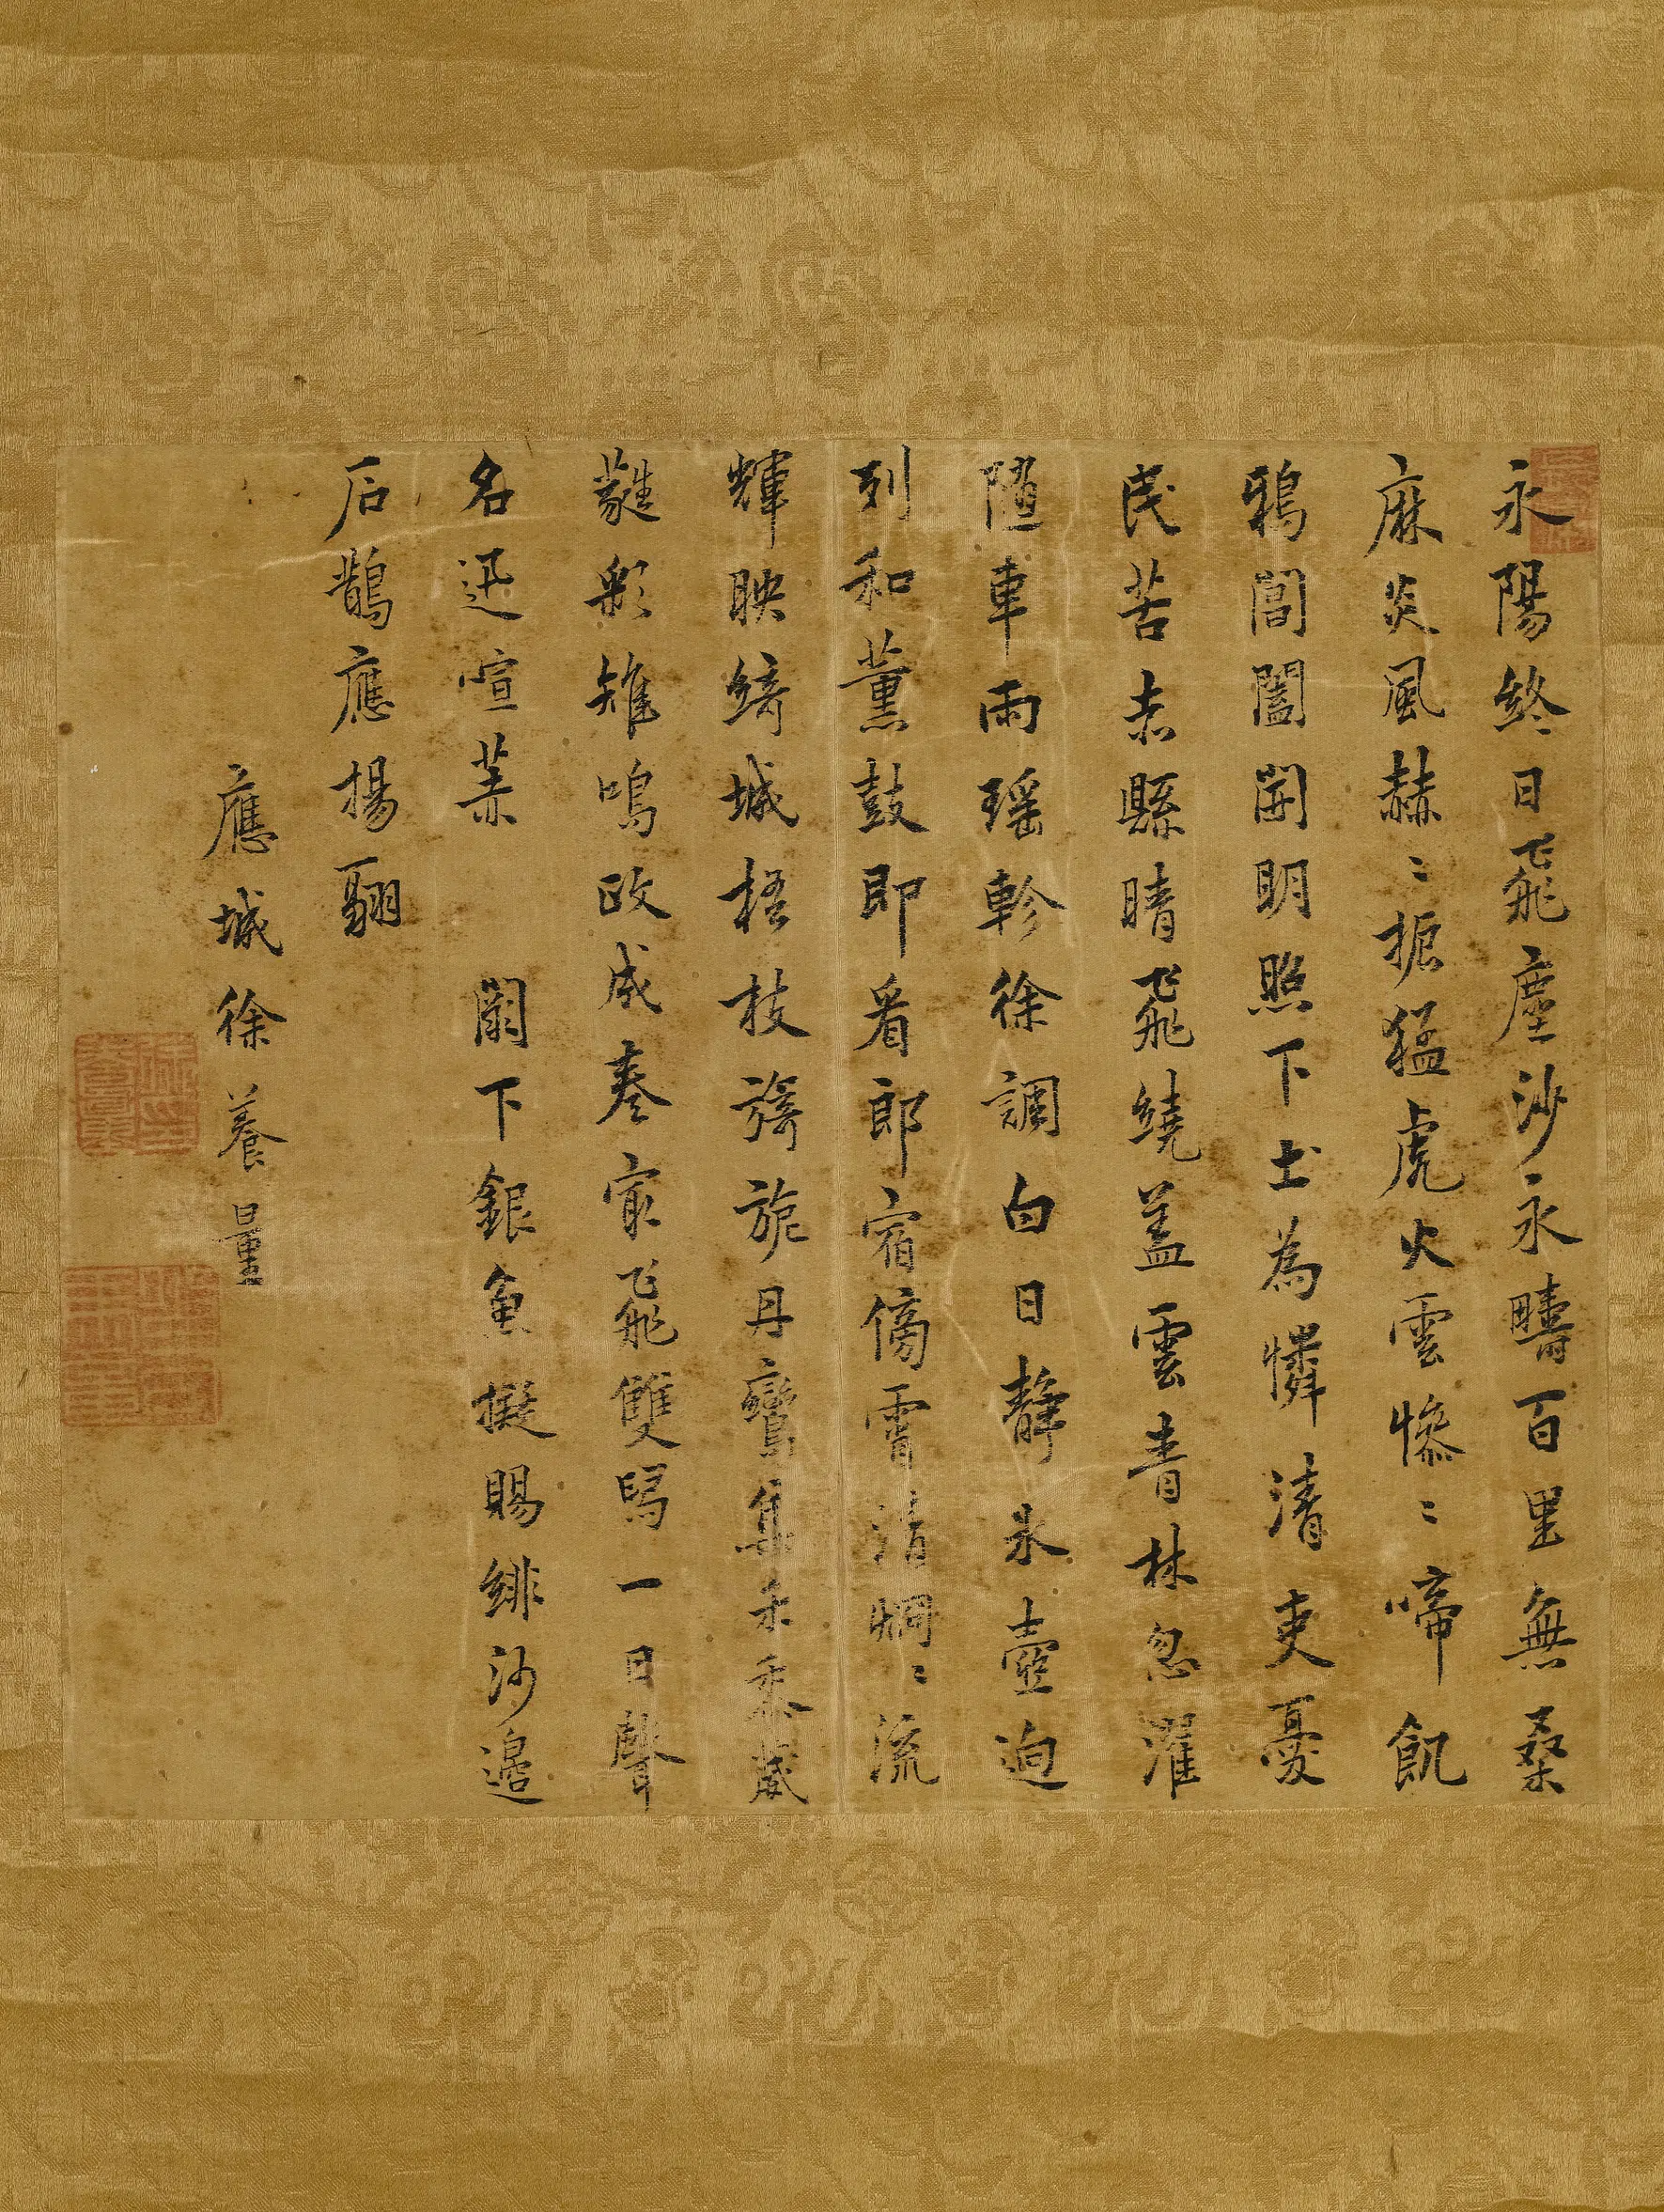 永陽終日飛塵沙永疇百里無桑
麻炎風赫〻掀猛虎火雲慘〻啼飢
鴉閶闔開明照下土為憐清吏憂
民苦赤縣晴飛繞蓋雲青林忽濯
隨車雨瑤軫徐調白日靜氷壺迥
列和薰鼓即看郎宿傍霄清烱〻流
輝映綺城梧枝旖旎丹鸞集禾黍葳
蕤彩雉鳴政成奏最飛雙舄一日聲
名迅喧
闕下銀魚擬賜緋沙邊
后鵲應揚翮
應城徐養量